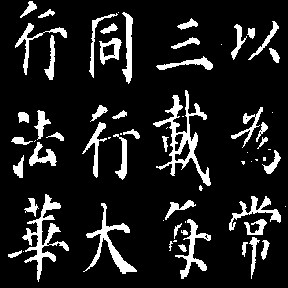 以為常
三載每
同行大
行法華